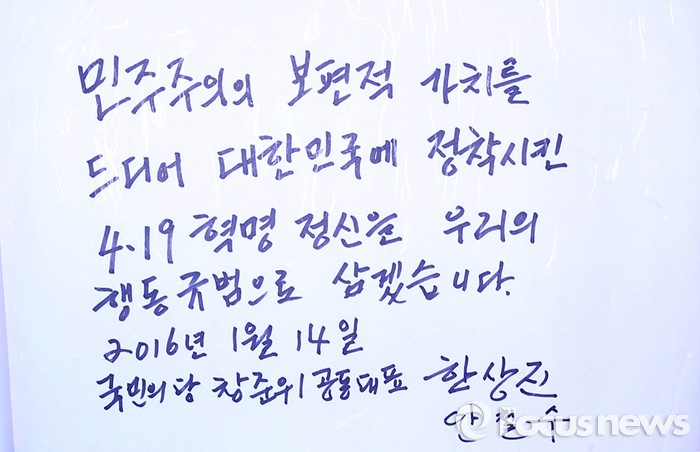 민주주의의 보편적 가치를
드디어 대한민국에 정착시킨
4.19 혁명 정신을 우리의
행동규범으로 삼겠습니다.
2016년 1월 14일
국민의당 창준위 공동대표 한상진
안철수
Focusnews